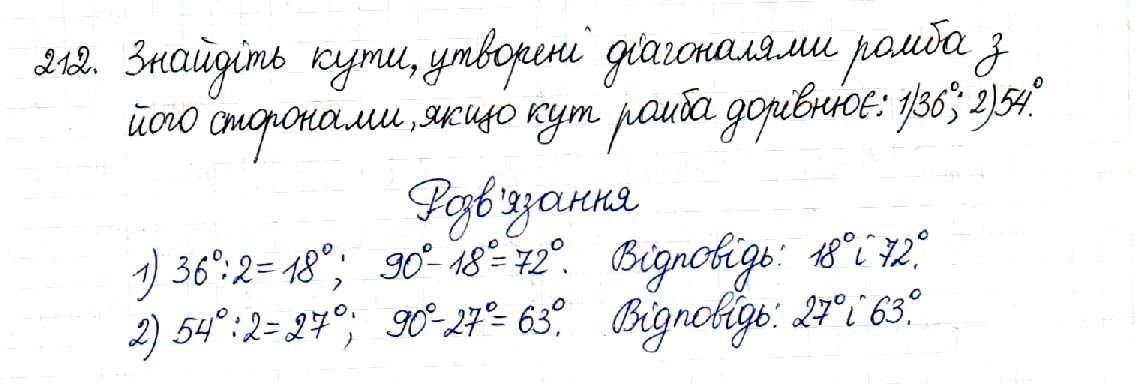 212. Знайдіть кути, утворені діагоналями ромба з
його сторонами, якщо кут ромба дорівнює: 1)36°; 2)54°.
Розв'язання
1) 36°:2=18°; 90°-18°=72°. Відповідь: 18° і 72°.
2) 54°:2=27°; 90°-27°=63°. Відповідь: 27° і 63°.